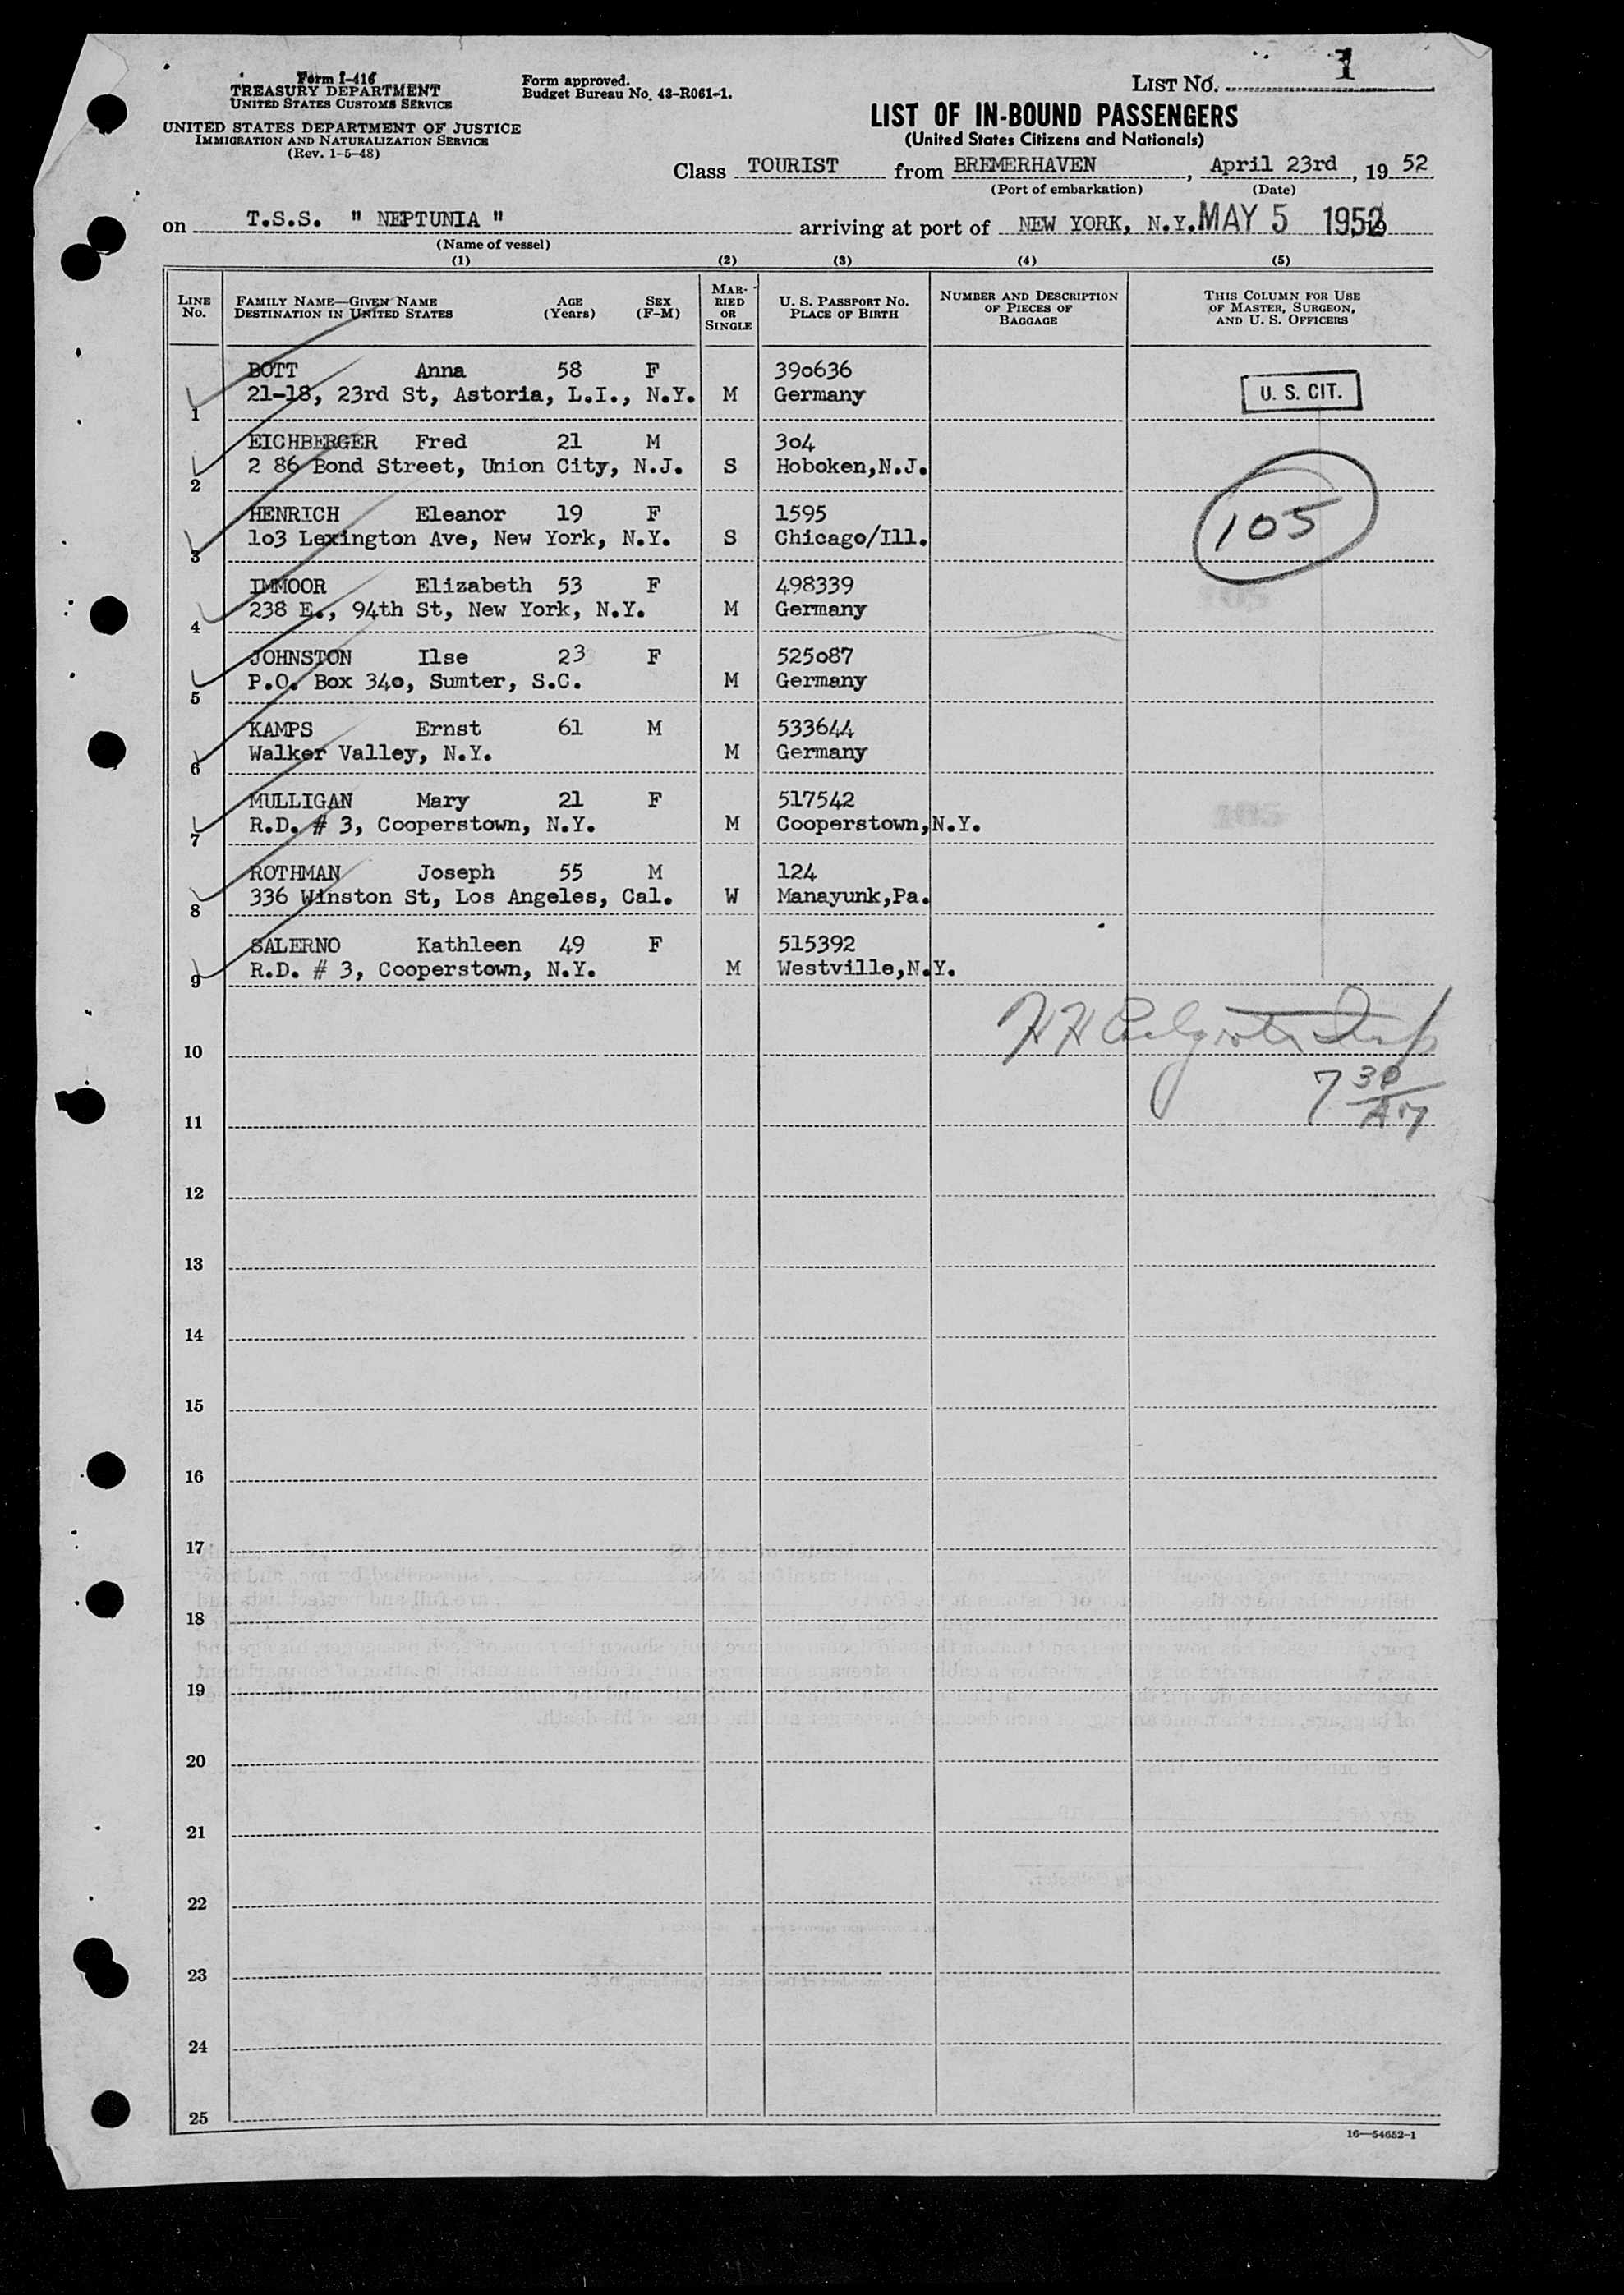 Form I-416
TREASURY DEPARTMENT
UNITED STATES CUSTOMS SERVICE
UNITED STATES DEPARTMENT OF JUSTICE
IMMIGRATION AND NATURALIZATION SERVICE
(Rev. 1-5-48)
Form approved.
Budget Bureau No. 43-R061-1.
LIST NO. 1
LIST OF IN-BOUND PASSENGERS
(United States Citizens and Nationals)
Class TOURIST from BREMERHAVEN, April 23rd, 19 52
(Port of embarkation) (Date)
on T.S.S. " NEPTUNIA " arriving at port of NEW YORK, N.Y. MAY 5 1952
(Name of vessel)
(1) (2) (3) (4) (5)
LINE No. FAMILY NAME—GIVEN NAME DESTINATION IN UNITED STATES AGE (Years) SEX (F-M) MARRIED OR SINGLE U. S. PASSPORT NO. PLACE OF BIRTH NUMBER AND DESCRIPTION OF PIECES OF BAGGAGE THIS COLUMN FOR USE OF MASTER, SURGEON, AND U. S. OFFICERS
BOTT Anna 58 F 390636
1 21-18, 23rd St, Astoria, L.I., N.Y. M Germany U. S. CIT.
EICHBERGER Fred 21 M 304
2 2 86 Bond Street, Union City, N.J. S Hoboken,N.J.
HENRICH Eleanor 19 F 1595
3 103 Lexington Ave, New York, N.Y. S Chicago/Ill. 105
IMMOOR Elizabeth 53 F 498339
4 238 E., 94th St, New York, N.Y. M Germany
JOHNSTON Ilse 23 F 525087
5 P.O. Box 340, Sumter, S.C. M Germany
KAMPS Ernst 61 M 533644
6 Walker Valley, N.Y. M Germany
MULLIGAN Mary 21 F 517542
7 R.D. # 3, Cooperstown, N.Y. M Cooperstown,N.Y.
ROTHMAN Joseph 55 M 124
8 336 Winston St, Los Angeles, Cal. W Manayunk,Pa.
SALERNO Kathleen 49 F 515392
9 R.D. # 3, Cooperstown, N.Y. M Westville,N.Y.
10
7 30 AM
11
12
13
14
15
16
17
18
19
20
21
22
23
24
25
16—54652-1